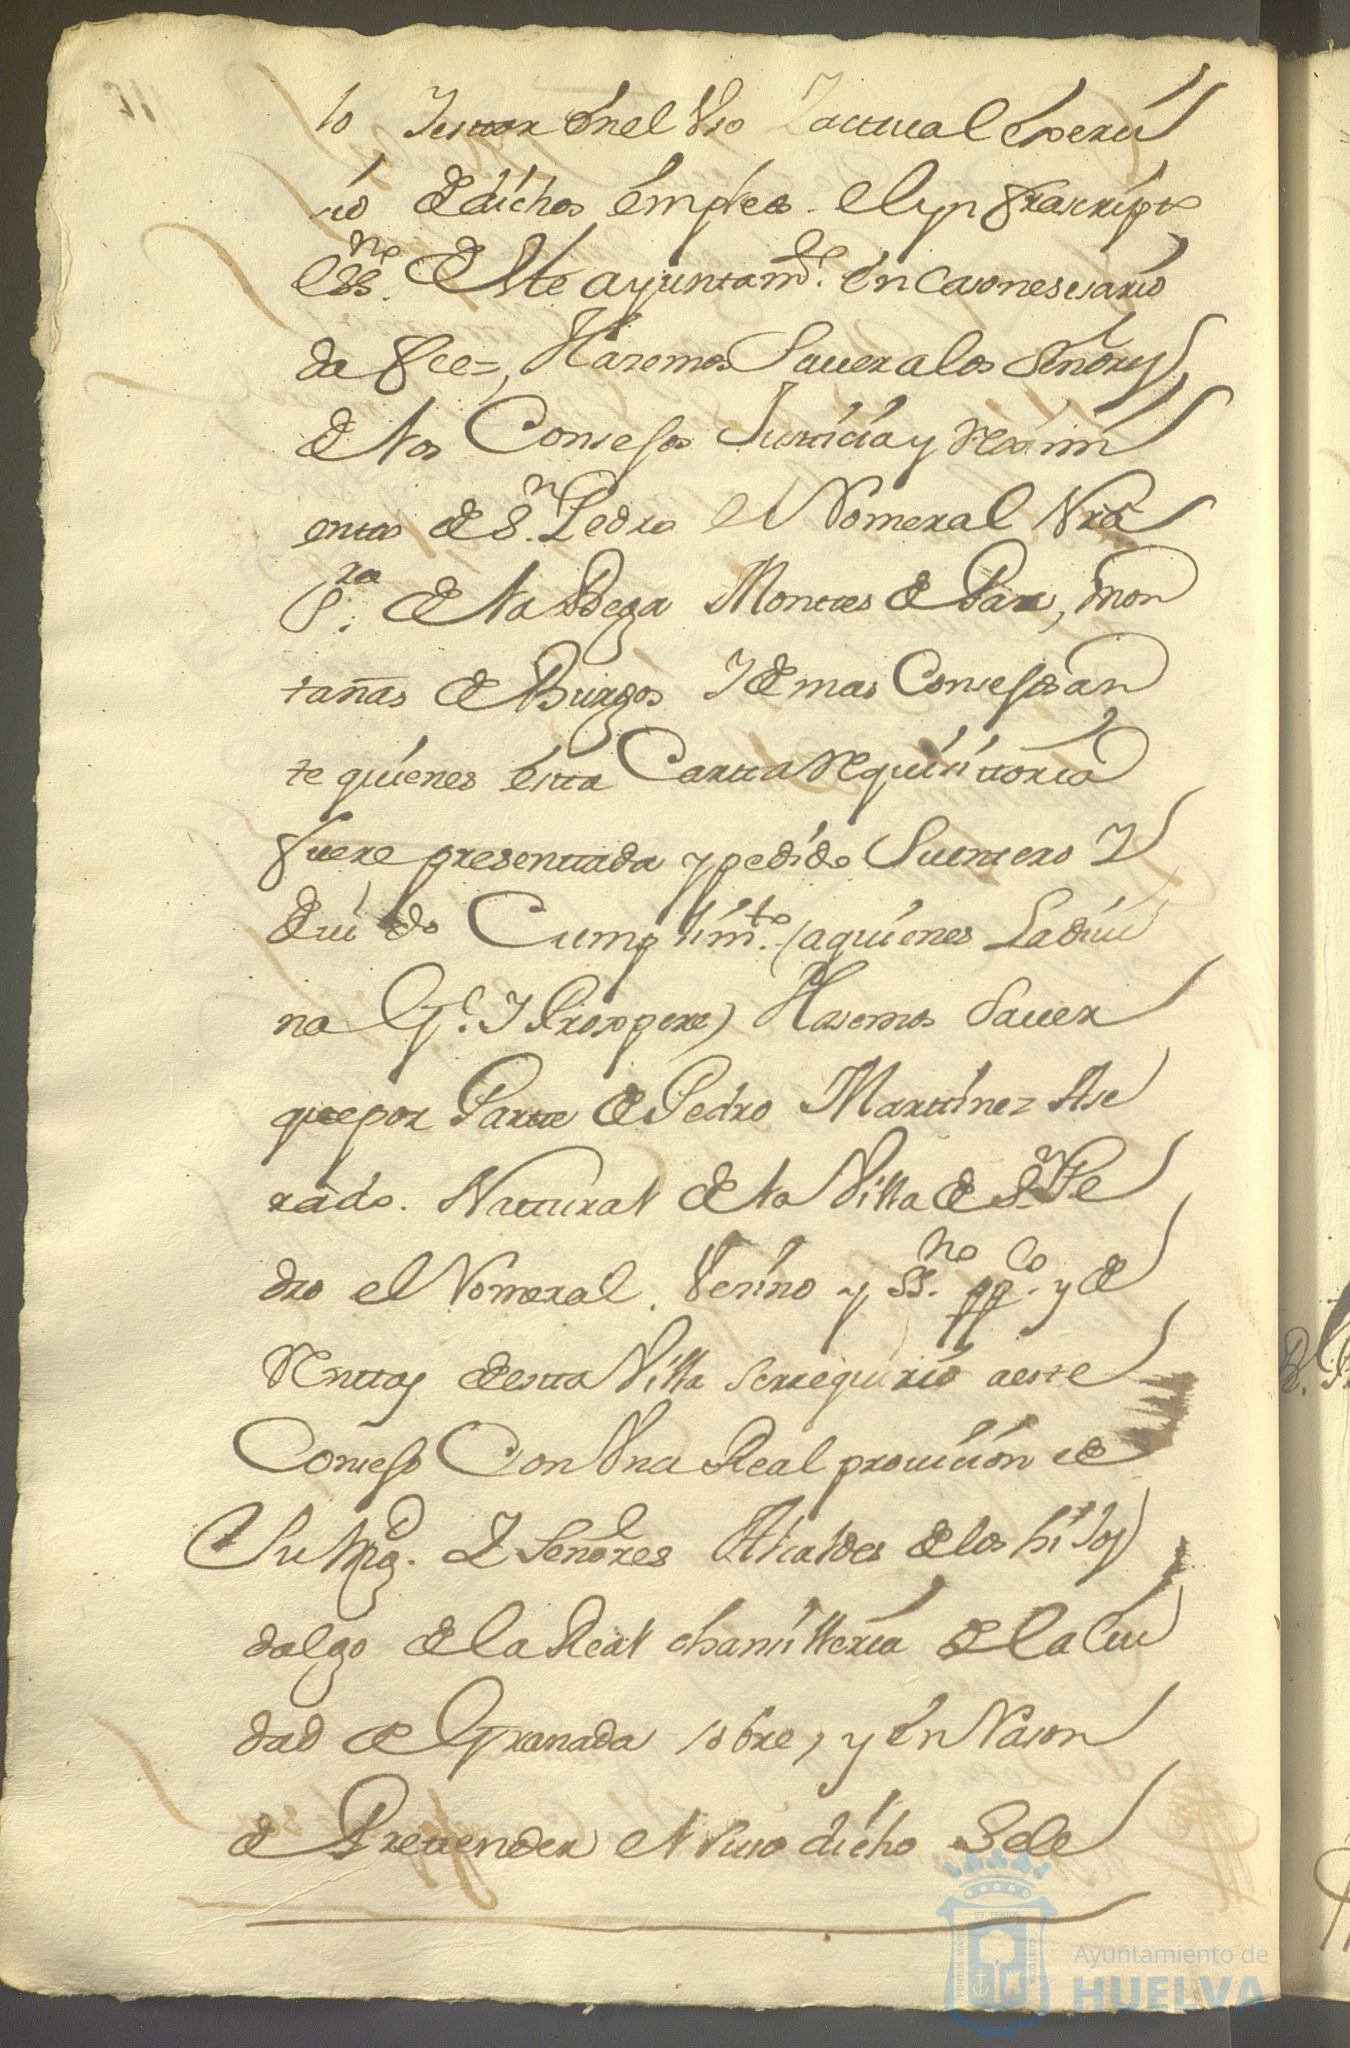 lo Jestar én el Vso Y actual éxerci
cio de dichos émpleo el ynfraescripto
ess.no de Este ayuntam.to én caso nesesario
da fee=, Hasemos Sauer a los señores
de los Consejos Justicia y Reximi
entos de S.n Pedro el Romeral Nra
S.ra de la Bega Montes de Pas, mon
tañas de Burgos Y demas Consejos an
te quienes ésta Carta Requisitoria
fuere presentada y pedido su entero Y
deuido Cumplim.to (a quienes La diui
na G.e Y Prospere) Hasemos Sauer
que por Parte de Pedro Martinez Ase
rado. Nattural de la Villa de S.n Pe
dro el Romeral. Vesino y ss.no pp.co y de
Renttas de esta Villa se requirió a este
Consejo Con Vna Real prouición de
Su Mag.d Y Señores Alcaldes de los hijos
dalgo de la Real chansilleria de la Ciu
dad de Granada sobre, y én Rason
de Pretender el suso dicho Se le
Ayuntamiento de
HUELVA